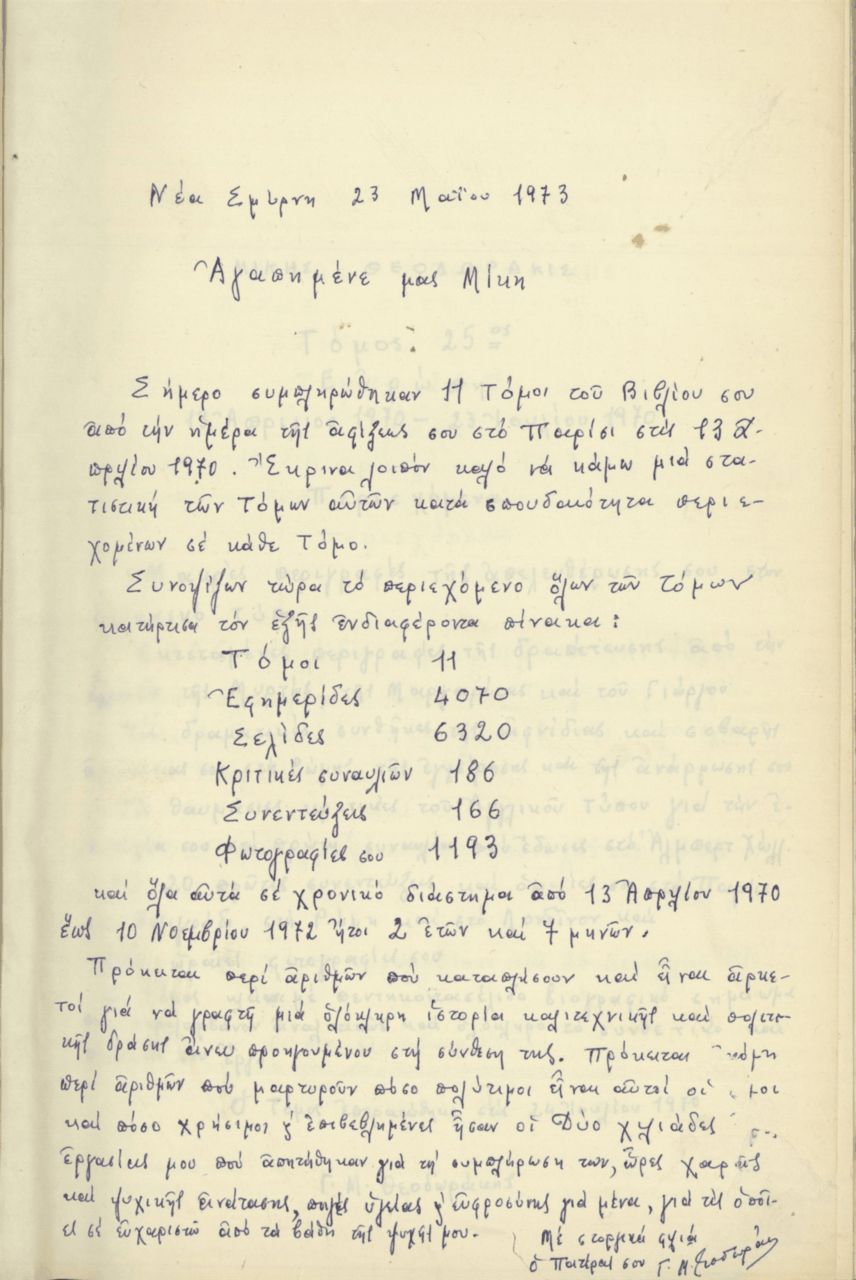 Νέα Σμύρνη 23 Μαΐου 1973
Ἀγαπημένε μας Μίκη
Σήμερο συμπληρώθηκαν 11 Τόμοι τοῦ Βιβλίου σου
ἀπό τήν ἡμέρα τῆς ἀφίξεώς σου στό Παρίσι στίς 13 Ἀ-
πριλίου 1970. Ἔκρινα λοιπόν καλό νά κάμω μιά στα-
τιστική τῶν Τόμων αὐτῶν κατά σπουδαιότητα περιε-
χομένων σέ κάθε Τόμο.
Συνοψίζων τώρα τό περιεχόμενο ὅλων τῶν Τόμων
κατήρτισα τόν ἑξῆς ἐνδιαφέροντα πίνακα:
Τόμοι 11
Ἐφημερίδες 4070
Σελίδες 6320
Κριτικές συναυλιῶν 186
Συνεντεύξεις 166
Φωτογραφίες σου 1193
καί ὅλα αὐτά σέ χρονικό διάστημα ἀπό 13 Ἀπριλίου 1970
ἕως 10 Νοεμβρίου 1972 ἤτοι 2 ἐτῶν καί 7 μηνῶν.
Πρόκειται περί ἀριθμῶν πού καταπλήσουν καί εἶναι ἀρκε-
τοί για νά γραφτῆ μιά ὁλόκληρη ἱστορία καλιτεχνικῆς καί πολιτι-
κῆς δράσης ἄνευ προηγουμένου στή σύνθεση της. Πρόκειται
περί ἀριθμῶν πού μαρτυροῦν πόσο πολύτιμοι εἶναι αὐτοί οἱ
καί πόσο χρήσιμοι ἐπιβεβλημένες ἦσαν οἱ Δύο χιλιάδες
ἐργασίας μου πού ἀπητήθηκαν γιά τή συμπλήρωση των, ὧρες χαρᾶς
καί ψυχικῆς ἀνάτασης, πηγές ὑγείας εὐφροσύνης γιά μένα, γιά τίς ὁποῖ-
ες σέ εὐχαριστῶ ἀπό τά βάθη τῆς ψυχῆς μου.
Μέ στοργικά φιλιά
ὁ Πατέρας σου Γ. Μ. Θεοδωράκης